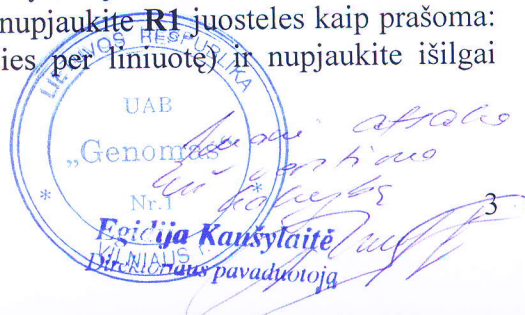 nupjaukite R1 juosteles kaip prašoma:
ies per liniuotę) ir nupjaukite išilgai
LIETUVOS RESPUBLIKA
UAB
„Genomas"
Nr.1
* *
VILNIAUS
Asmeni atsako
už vertimo
kokybę
3
Egidija Kaušylaitė
Direktoriaus pavaduotoja